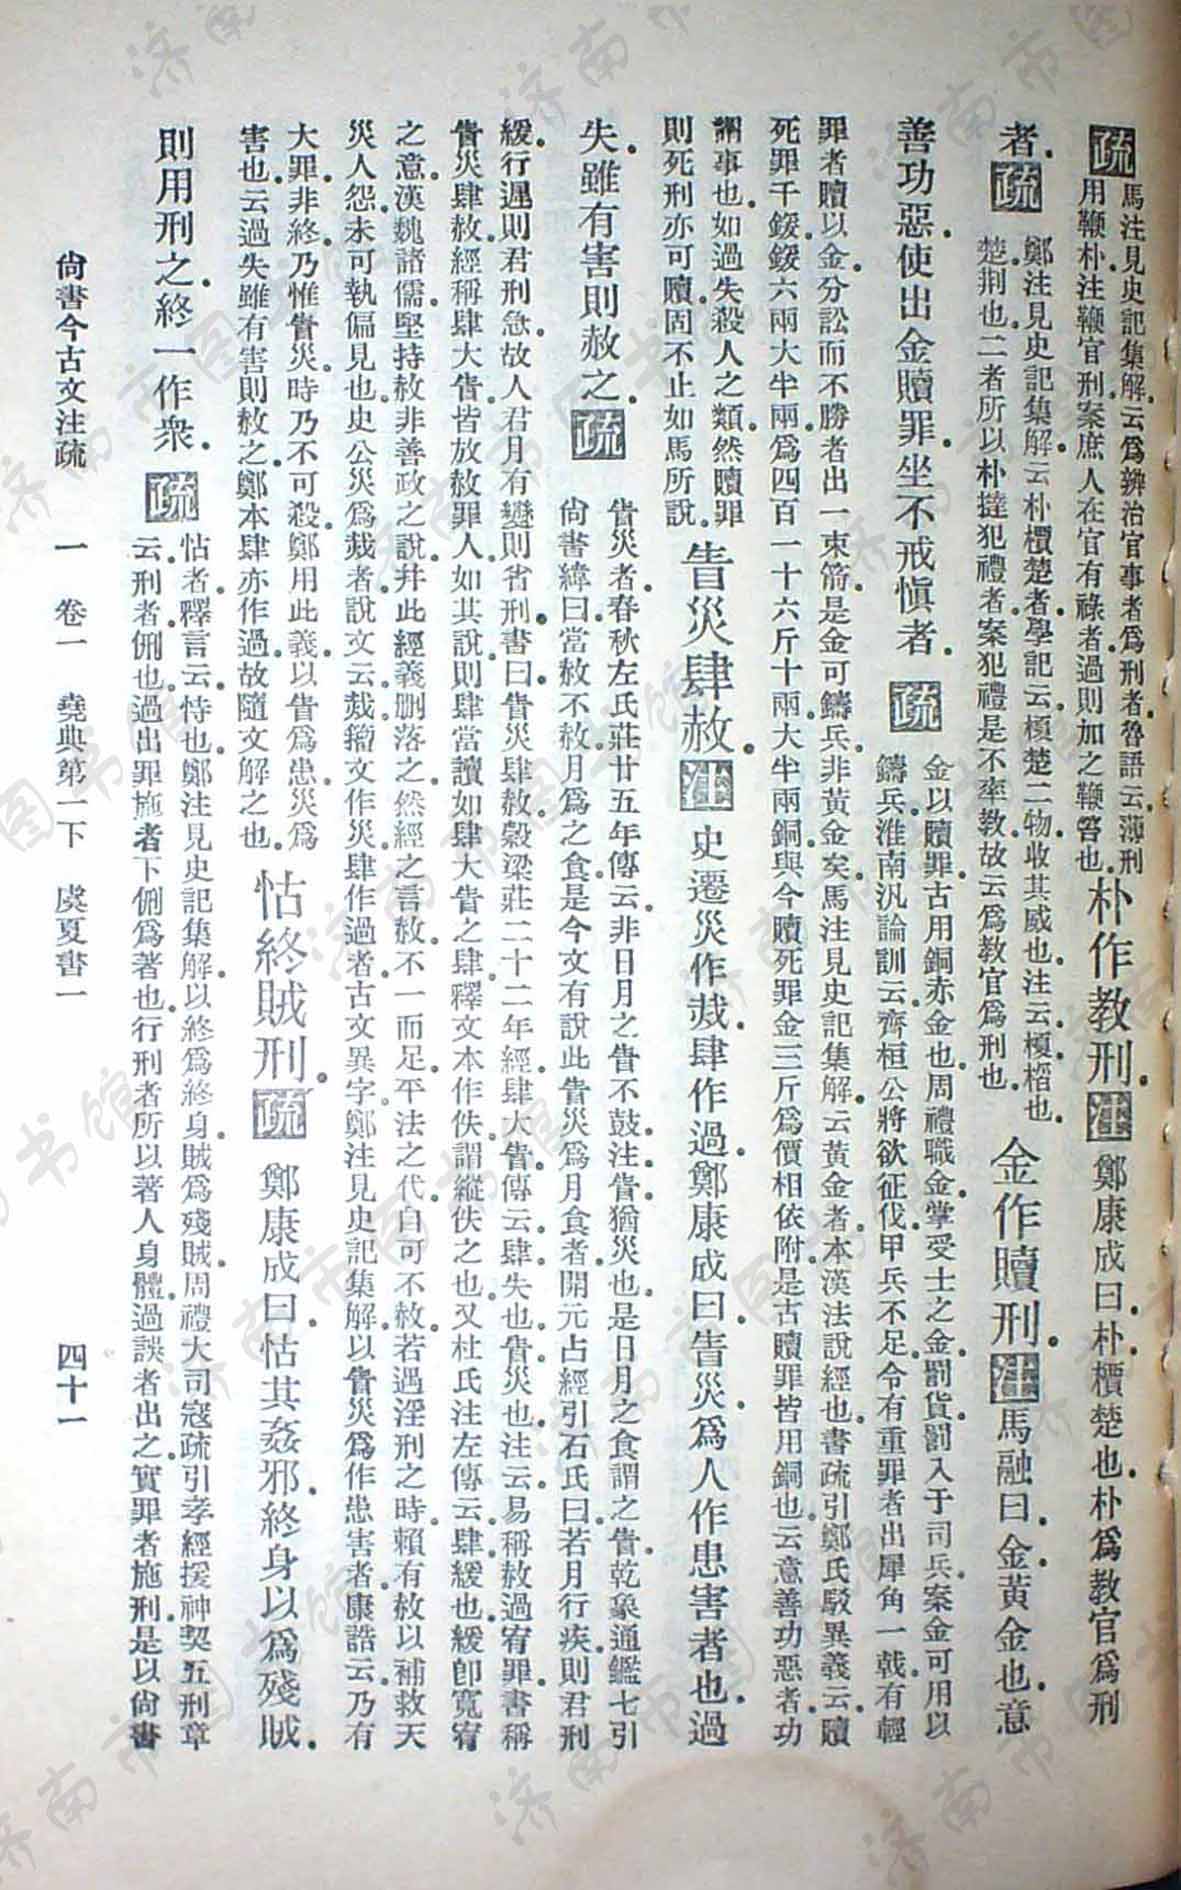 疏 馬注見史記集解云爲辨治官事者爲刑者魯語云薄刑
用鞭朴注鞭官刑案庶人在官有祿者過則加之鞭笞也
朴作教刑注鄭康成曰朴檟楚也朴爲教官爲刑
者疏
鄭注見史記集解云朴檟楚者學記云榎楚二物收其威也注云榎榙也
楚荆也二者所以朴撻犯禮者案犯禮是不率教故云爲教官爲刑也
金作贖刑注馬融曰金黃金也意
善功惡使出金贖罪坐不戒慎者疏
金以贖罪古用銅赤金也周禮職金掌受士之金罰貨罰入于司兵案金可用以
鑄兵淮南汎論訓云齊桓公將欲征伐甲兵不足令有重罪者出犀角一戟有輕
罪者贖以金分訟而不勝者出一束箭是金可鑄兵非黃金矣馬注見史記集解云黃金者本漢法說經也書疏引鄭氏駁異義云贖
死罪千鍰鍰六兩大半兩爲四百一十六斤十兩大半兩銅與今贖死罪金三斤爲價相依附是古贖罪皆用銅也云意善功惡者功
謂事也如過失殺人之類然贖罪
則死刑亦可贖固不止如馬所說
眚災肆赦注史遷災作烖肆作過鄭康成曰眚災爲人作患害者也過
失雖有害則赦之疏
眚災者春秋左氏莊廿五年傳云非日月之眚不鼓注眚猶災也是日月之食謂之眚乾象通鑑七引
尙書緯曰當赦不赦月爲之食是今文有說此眚災爲月食者開元占經引石氏曰若月行疾則君刑
緩行遲則君刑急故人君月有變則省刑書曰眚災肆赦穀梁莊二十二年經肆大眚傳云肆失也眚災也注云易稱赦過宥罪書稱
眚災肆赦經稱肆大眚皆放赦罪人如其說則肆當讀如肆大眚之肆釋文本作佚謂縱佚之也又杜氏注左傳云肆緩也緩卽寬宥
之意漢魏諸儒堅持赦非善政之說幷此經義刪落之然經之言赦不一而足平法之代自可不赦若遇淫刑之時賴有赦以補救天
災人怨未可執偏見也史公災爲烖者說文云烖籀文作災肆作過者古文異字鄭注見史記集解以眚災爲作患害者康誥云乃有
大罪非終乃惟眚災時乃不可殺鄭用此義以眚爲患災爲
害也云過失雖有害則赦之鄭本肆亦作過故隨文解之也
怙終賊刑疏鄭康成曰怙其姦邪終身以爲殘賊
則用刑之終一作衆疏
怙者釋言云恃也鄭注見史記集解以終爲終身賊爲殘賊周禮大司寇疏引孝經援神契五刑章
云刑者侀也過出罪施者下侀爲著也行刑者所以著人身體過誤者出之實罪者施刑是以尙書
尙書今古文注疏 一 卷一 堯典第一下 虞夏書一 四十一